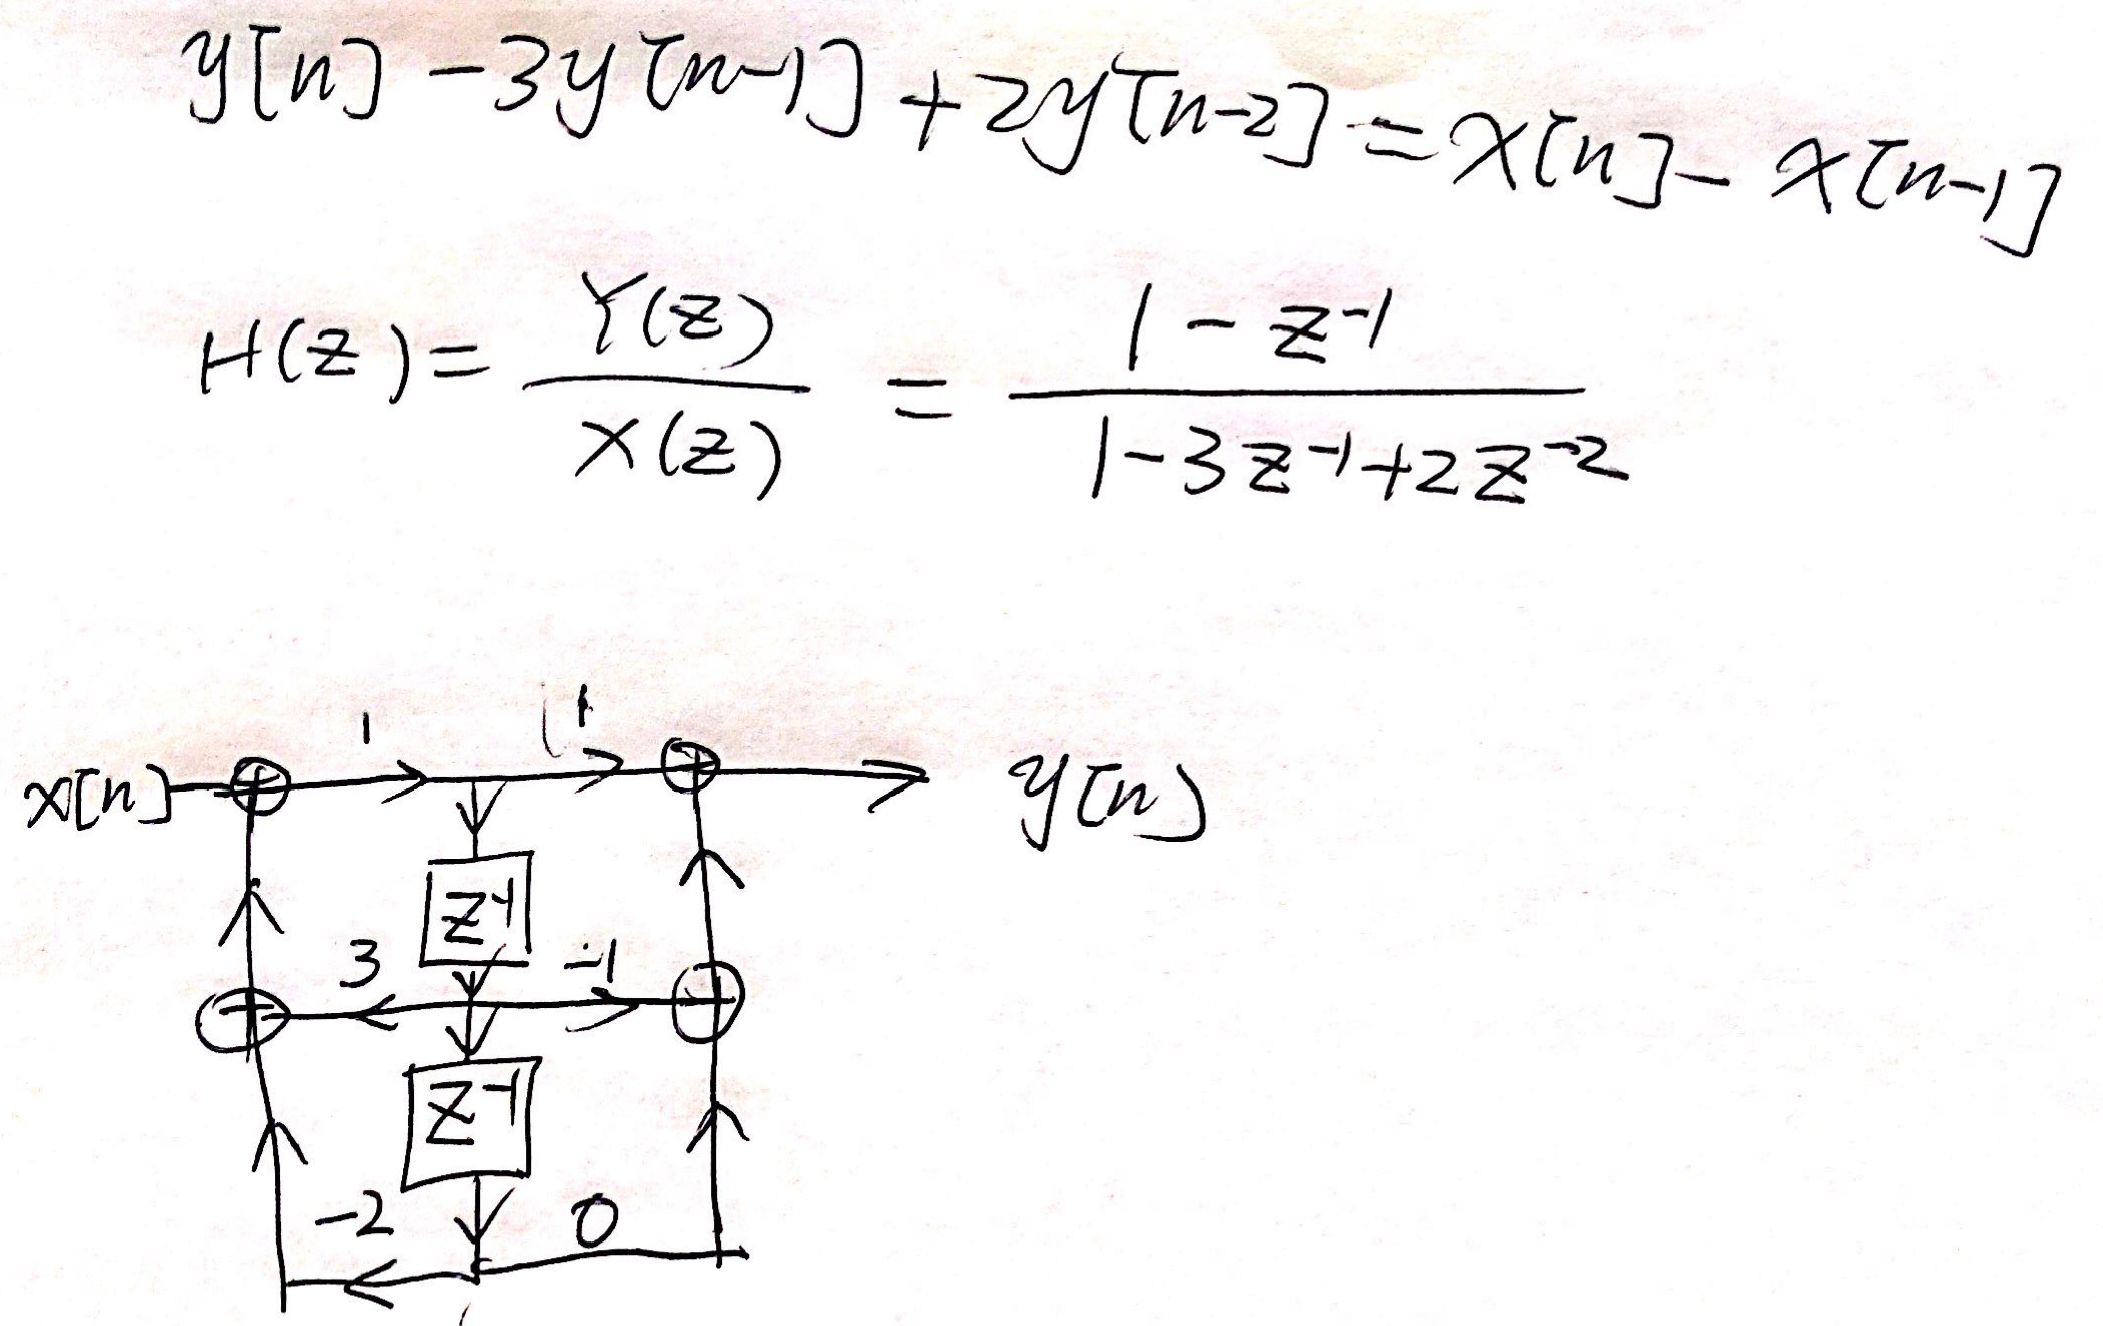 y[n] - 3y[n-1] + 2y[n-2] = x[n] - x[n-1]
H(z) = Y(z) / X(z) = 1 - z⁻¹ / 1 - 3z⁻¹ + 2z⁻²
1 1
x[n] y[n]
z⁻¹
3 -1
z⁻¹
-2 0